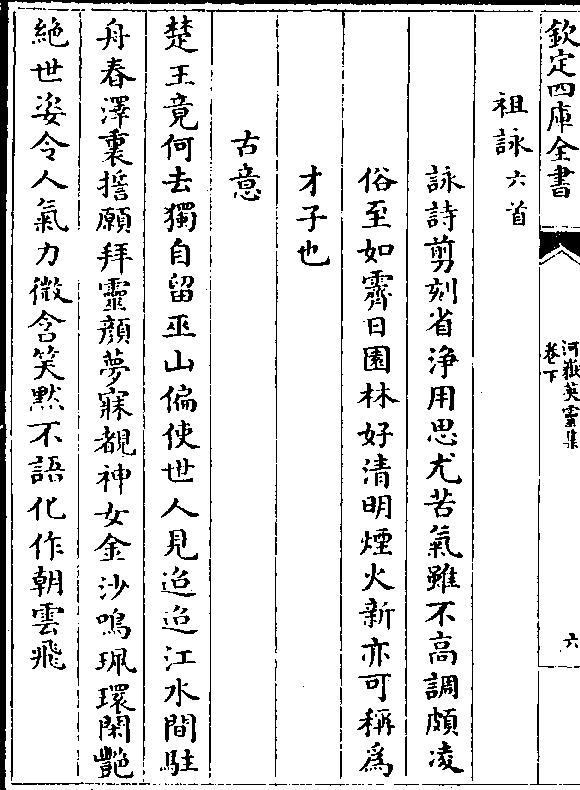 欽定四庫全書
河嶽英靈集
卷下
六
祖詠六首
詠詩剪刻省浄用思尤苦氣雖不高調頗凌
俗至如霽日園林好清明煙火新亦可稱為
才子也
古意
楚王竟何去獨自留巫山偏使世人見迢迢江水間駐
舟春澤裏誓願拜靈顔夢寐覩神女金沙鳴珮環閑艷
絶世姿令人氣力微含笑黙不語化作朝雲飛